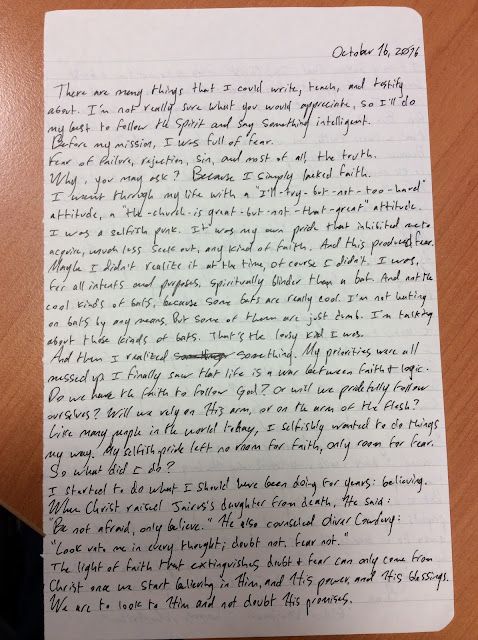 October 16, 2016
There are many things that I could write, teach, and testify
about. I'm not really sure what you would appreciate, so I'll do
my best to follow the Spirit and say something intelligent.
Before my mission, I was full of fear.
Fear of failure, rejection, sin, and most of all, the truth.
Why, you may ask? Because I simply lacked faith.
I went through my life with a "I'll-try-but-not-too-hard"
attitude, a "the-church-is great-but-not-that-great" attitude.
I was a selfish punk. It was my own pride that inhibited me to
acquire, much less seek out, any kind of faith. And this produced fear.
Maybe I didn't realize it at the time, of course I didn't. I was,
for all intents and purposes, spiritually blinder than a bat. And not the
cool kinds of bats, because some bats are really cool. I'm not hating
on bats by any means. But some of them are just dumb. I'm talking
about those kinds of bats. That's the lousy kid I was.
And then I realized something. My priorities were all
messed up. I finally saw that life is a war between faith & logic.
Do we have the faith to follow God? Or will we pridefully follow
ourselves? Will we rely on His arm, or on the arm of the flesh?
Like many people in the world today, I selfishly wanted to do things
my way. My selfish pride left no room for faith, only room for fear.
So what did I do?
I started to do what I should have been doing for years: believing.
When Christ raised Jairus's daughter from death, He said:
"Be not afraid, only believe." He also counseled Oliver Cowdery:
"Look unto me in every thought; doubt not, fear not."
The light of faith that extinguishes doubt & fear can only come from
Christ once we start believing in Him, and His power, and His blessings.
We are to look to Him and not doubt His promises.